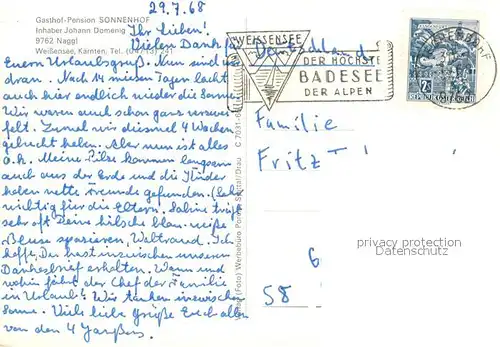 29.7.68
Gasthof-Pension SONNENHOF
Inhaber Johann Domenig
9762 Naggl
Weißensee, Kärnten, Tel. (04713) 241
Ihr Lieben!
Vielen Dank für
Euern Urlaubsgruß. Nun sind
wir dran. Nach 14 miesen Tagen lacht
auch hier endlich wieder die Sonne.
Wir waren auch schon ganz verzwei
felt. Zumal wir diesmal 4 Wochen
gebucht haben. Aber nun ist alles
o.k. Meine Pilze kommen langsam
auch aus der Erde und die Kinder
haben nette Freunde gefunden. (Sehr
wichtig für die Eltern. Sabine trägt
sehr oft Deine hübsche blau-weiße
Bluse spazieren, Waltraud. Ich
hoffe, Du hast inzwischen unseren
Dankesbrief erhalten. Wann und
wohin fährt der Chef der Familie
in Urlaub? Wir tanken inzwischen
Sonne. Viele liebe Grüße Euch allen
von den 4
(Foto) Werbebüro Spittal/Drau
WEISSENSEE
DER HÖCHSTE
BADESEE
DER ALPEN
Deutschland
Familie
Fritz
6
58
privacy protection
Datenschutz